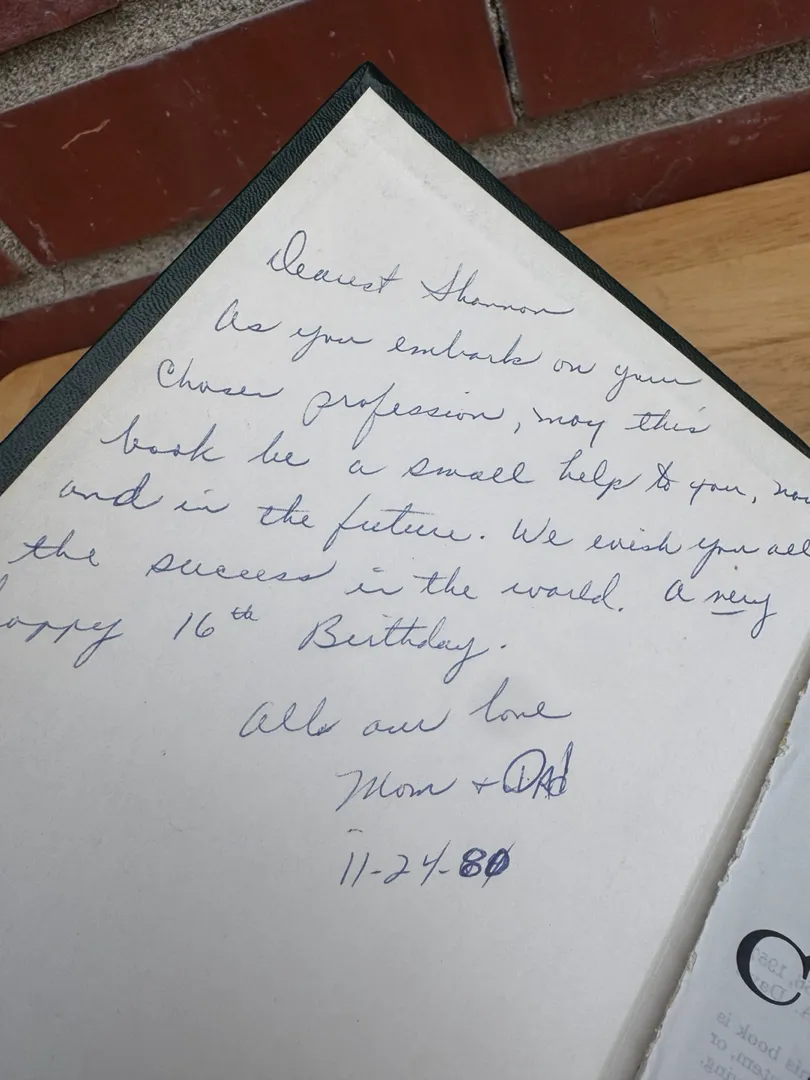 Dearest Shannon
As you embark on your
Chosen profession, may this
book be a small help to you, now
and in the future. We wish you all
the success in the world. A very
happy 16th Birthday.
All our love
Mom + DAd
11-24-80
C